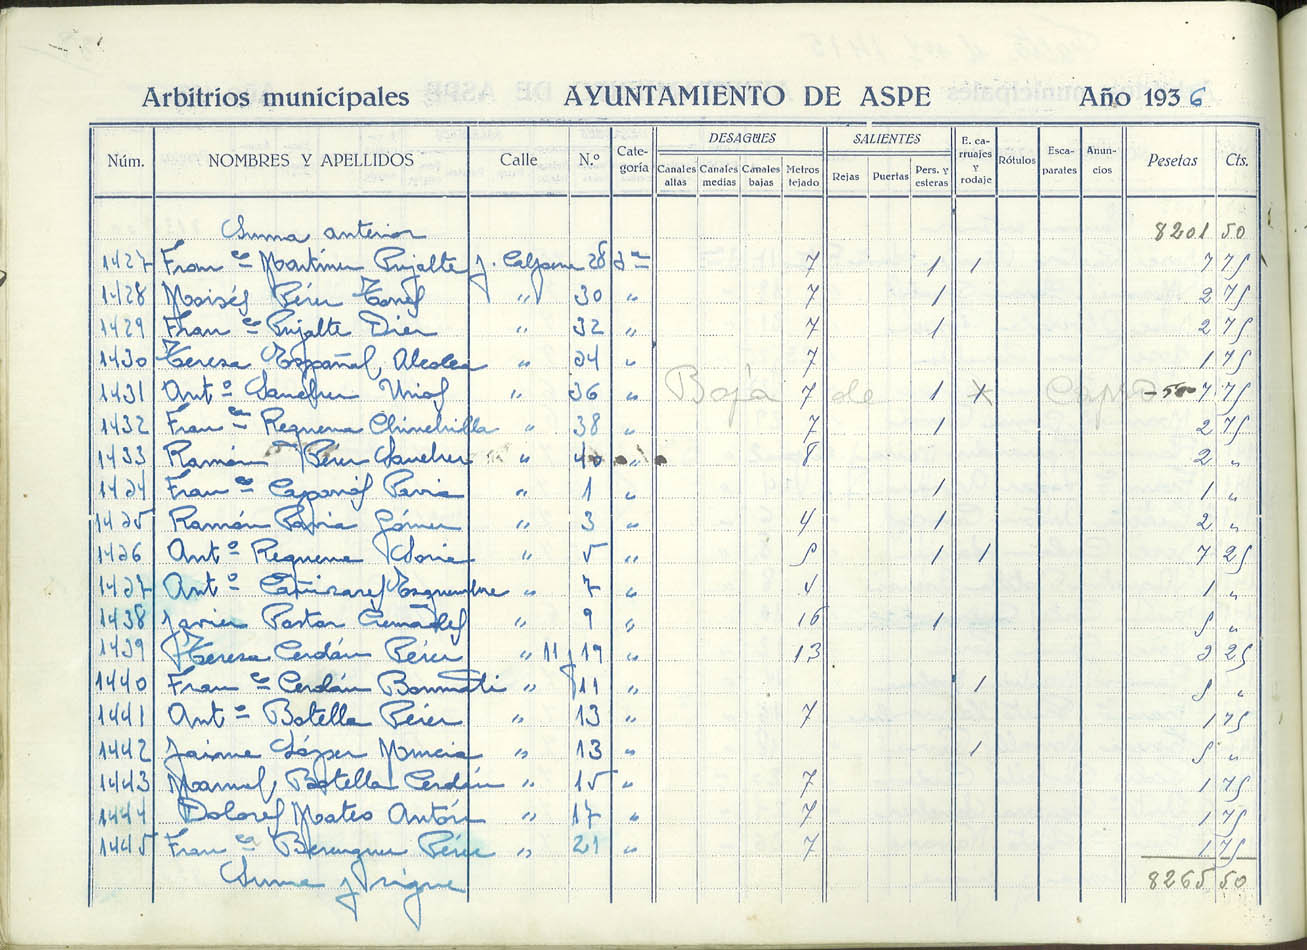 Arbitrios municipales AYUNTAMIENTO DE ASPE Año 1936
Núm. NOMBRES Y APELLIDOS Calle N.º Cate- goría DESAGÜES Canales altas Canales medias Canales bajas Metros tejado SALIENTES Rejas Puertas Pers. y esteras E. ca- rruajes y rodaje Rótulos Esca- parates Anun- cios Pesetas Cts.
Suma anterior 8201 50
1427 Fran co Martínez Pujalte J. Calpena 28 2ª 7 1 1 7 75
1428 Moisés Pérez " 30 " 7 1 2 75
1429 Fran co Pujalte Díez " 32 " 7 1 2 75
1430 Teresa Español Alcolea " 34 " 7 1 75
1431 Antº Sánchez " 36 " Baja 7 de 1 Capso -50 7 75
1432 Fran ca Requena Chinchilla " 38 " 7 1 2 75
1433 Ramón Pérez Sánchez " 40 " 8 2 "
1434 Fran co Pavía " 1 " 1 1 "
1435 Ramón Pavía Gómez " 3 " 4 1 2 "
1436 Antº Requena Soria " 5 " 5 1 1 7 25
1437 Antº Cañizares Esquembre " 7 " 4 1 "
1438 Javier Pastor Cremades " 9 " 16 1 5 "
1439 Teresa Cerdán Pérez " 11 y 19 " 13 3 25
1440 Fran co Cerdán Bonmatí " 11 " 1 5 "
1441 Antº Botella Pérez " 13 " 7 1 75
1442 Jaime López Murcia " 13 " 1 5 "
1443 Manuel Botella Cerdán " 15 " 7 1 75
1444 Dolores Mateo Antón " 17 " 7 1 75
1445 Fran ca Berenguer Pérez " 21 " 7 1 75
Suma y sigue 8265 50